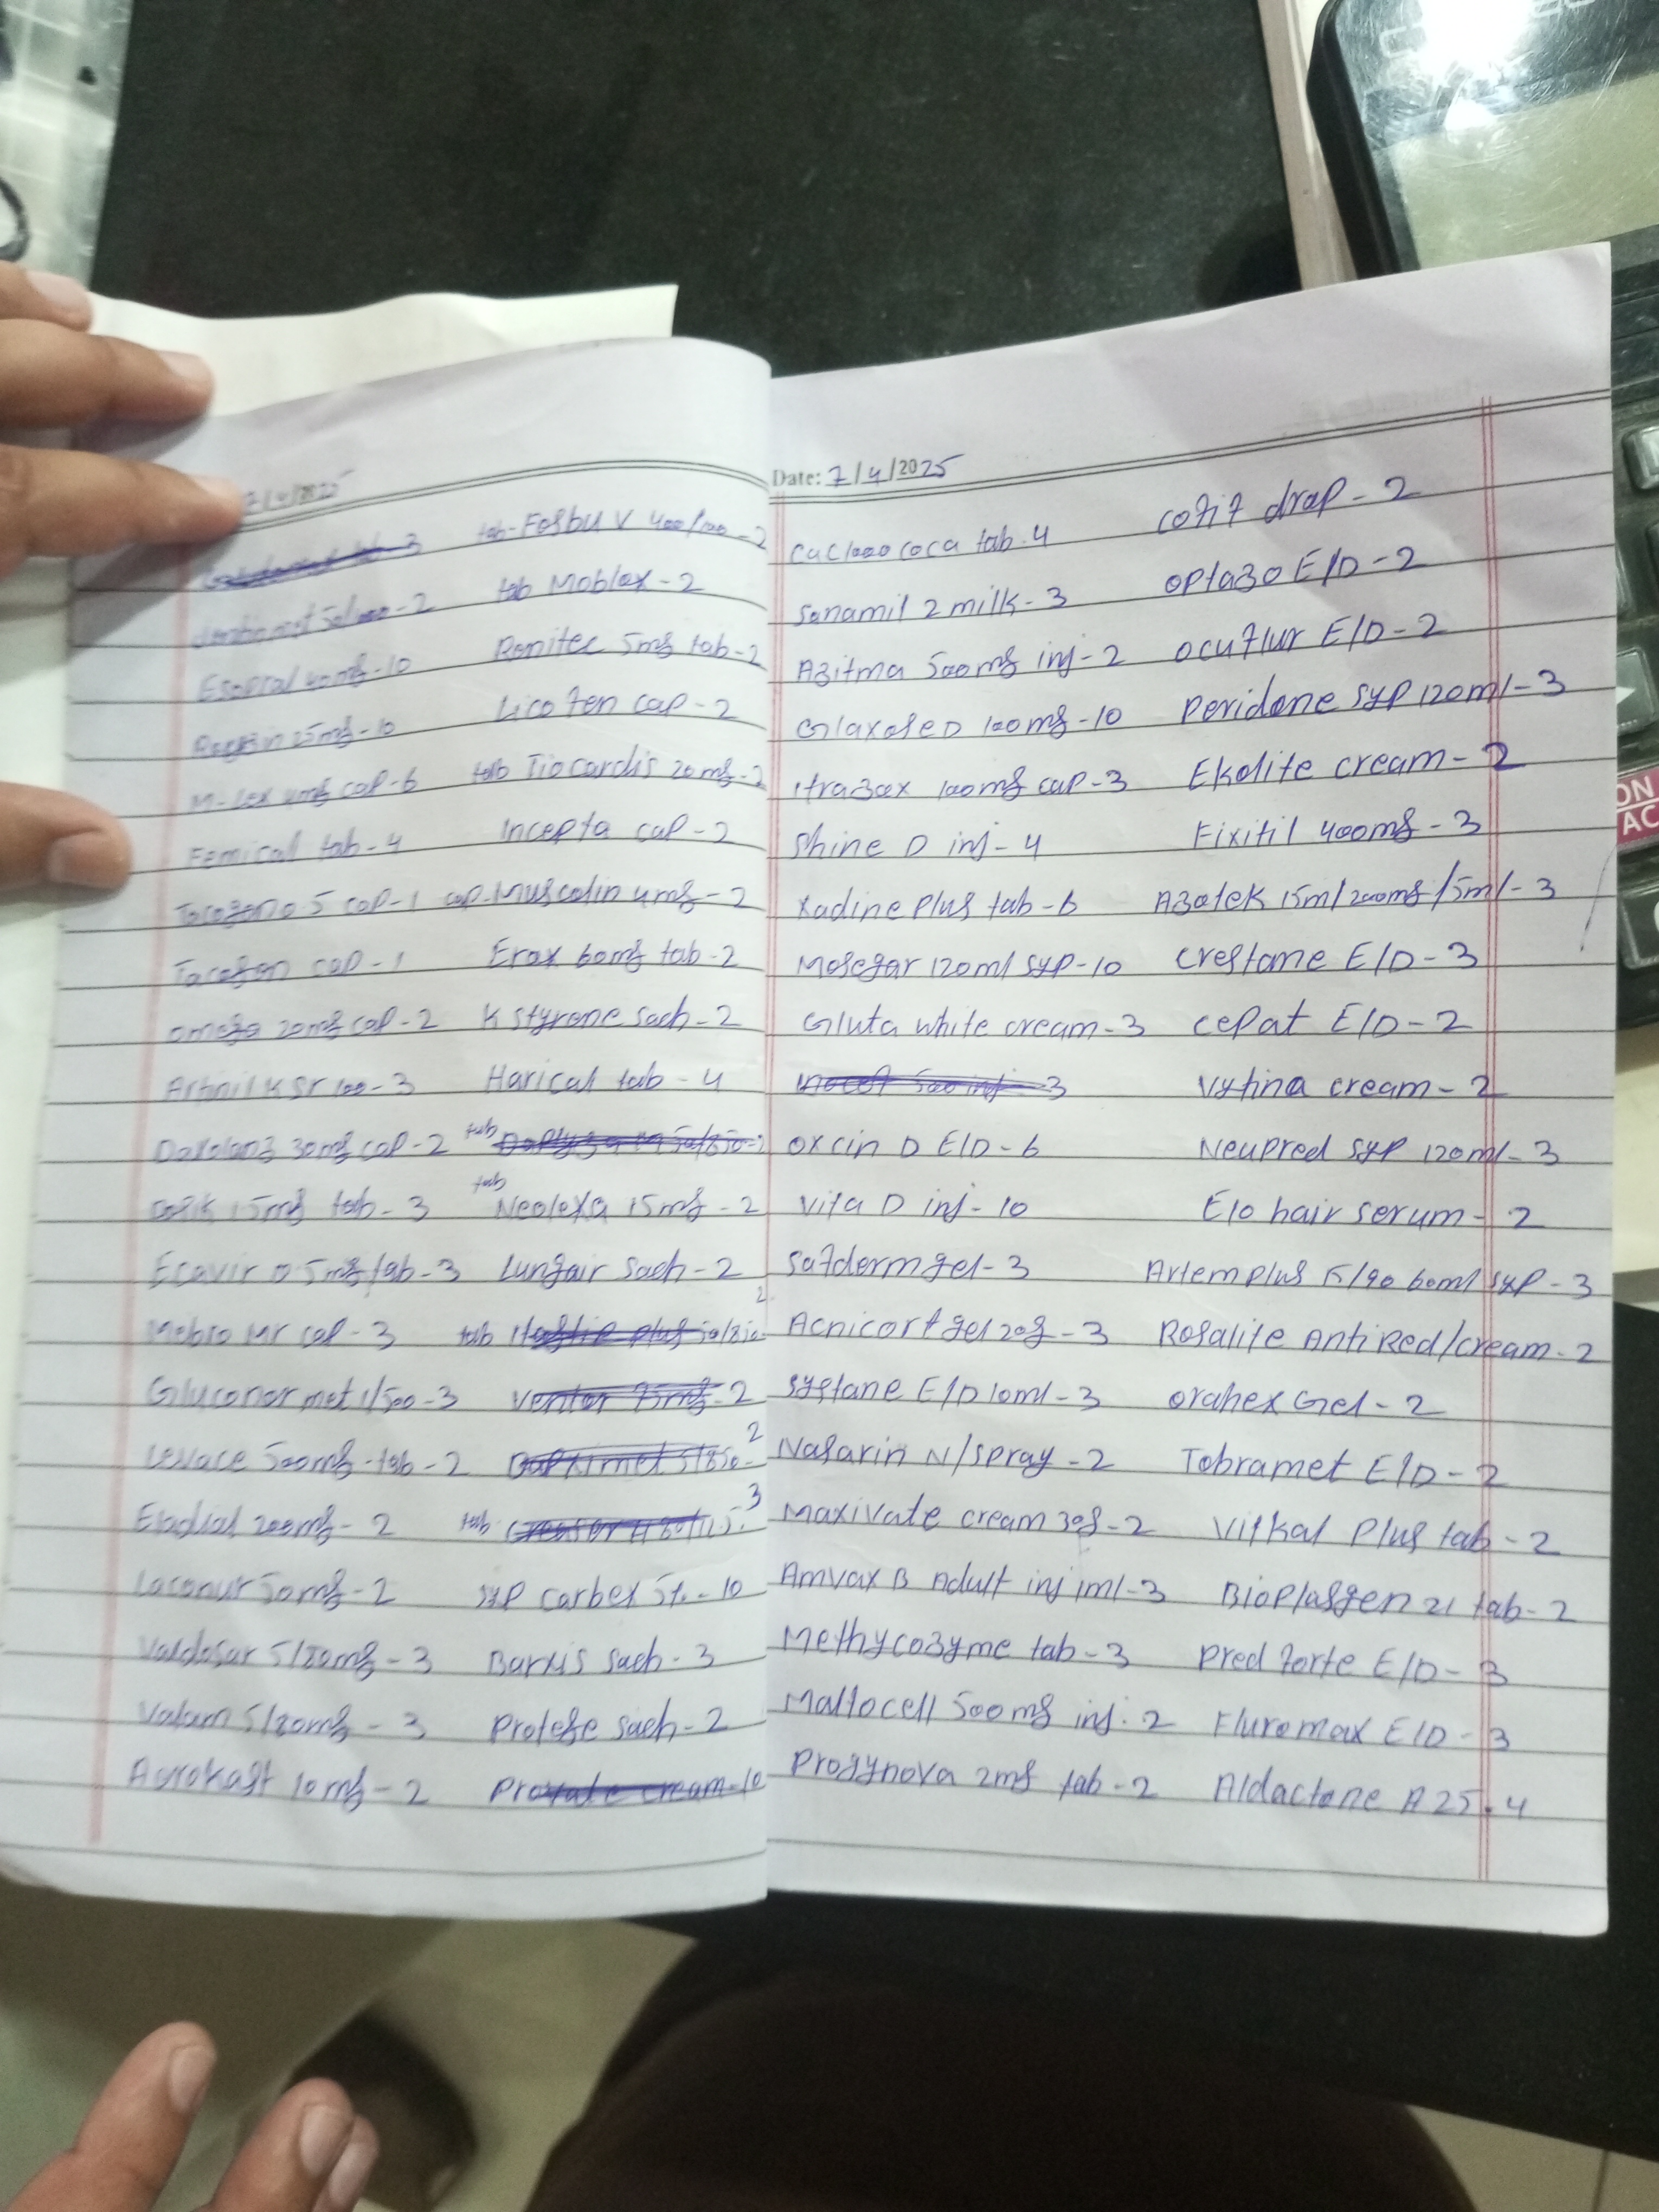 7/4/2025
tab-Fosbu V 400/100-2
tab Moblox-2
Esopral 40mg-10
Ramitec 5mg tab-2
25mg-10
Licofen cap-2
cap-6
tab Tiocardis 20mg-2
Femical tab-4
Incepta cap-2
5 cap-1
cap-Muscolin 4mg-2
cap-1
Erax 60mg tab-2
omega 20mg cap-2
K styrone sach-2
Artinil K Sr 100-3
Harical tab-4
Daxolanz 30mg cap-2
tab
15mg tab-3
tab Neolexa 15mg-2
Ecavir D 5mg tab-3
Lungair Sach-2
Mebro Mr cap-3
tab
Gluconor met 1/500-3
Ventor 75mg-2
Levace 500mg-tab-2
Ebdial 200mg-2
tab
Laconur 50mg-2
syp carbex St.-10
Valdosar 5/80mg-3
Barxis sach-3
Valam 5/80mg-3
Protefe sach-2
Aerokast 10mg-2
cream-10
Date: 7/4/2025
cac1000 coca tab-4
cofif drop-2
Sanamil 2 milk-3
optazo E/D-2
Azitma 500mg inj-2
ocuflur E/D-2
Glaxose D 100mg-10
Peridone syp 120ml-3
itrazox 100mg cap-3
Ekolite cream-2
Shine D inj-4
Fixitil 400mg-3
Xadine Plus tab-6
Azotek 15ml/200mg/5ml-3
Mosegar 120ml syp-10
Crestome E/D-3
Gluta white cream-3
cepat E/D-2
500 inj-3
Vytina cream-2
oxcin D E/D-6
Neupred syp 120ml-3
Vita D inj-10
Elo hair serum-2
Safderm gel-3
Artem plus 15/90 60ml syp-3
Acnicort gel 20g-3
Rosalife Anti Red/cream-2
Systane E/D 10ml-3
orahex Gel-2
Nasarin N/spray-2
Tobramet E/D-2
Maxivate cream 30g-2
Vitkal Plus tab-2
Amvax B Adult inj 1ml-3
BioPlasgen 21 tab-2
Methycozyme tab-3
Pred forte E/D-3
Maltocell 500mg inj-2
Fluromax E/D-3
Progynova 2mg tab-2
Aldactone A 25-4
ON
AC